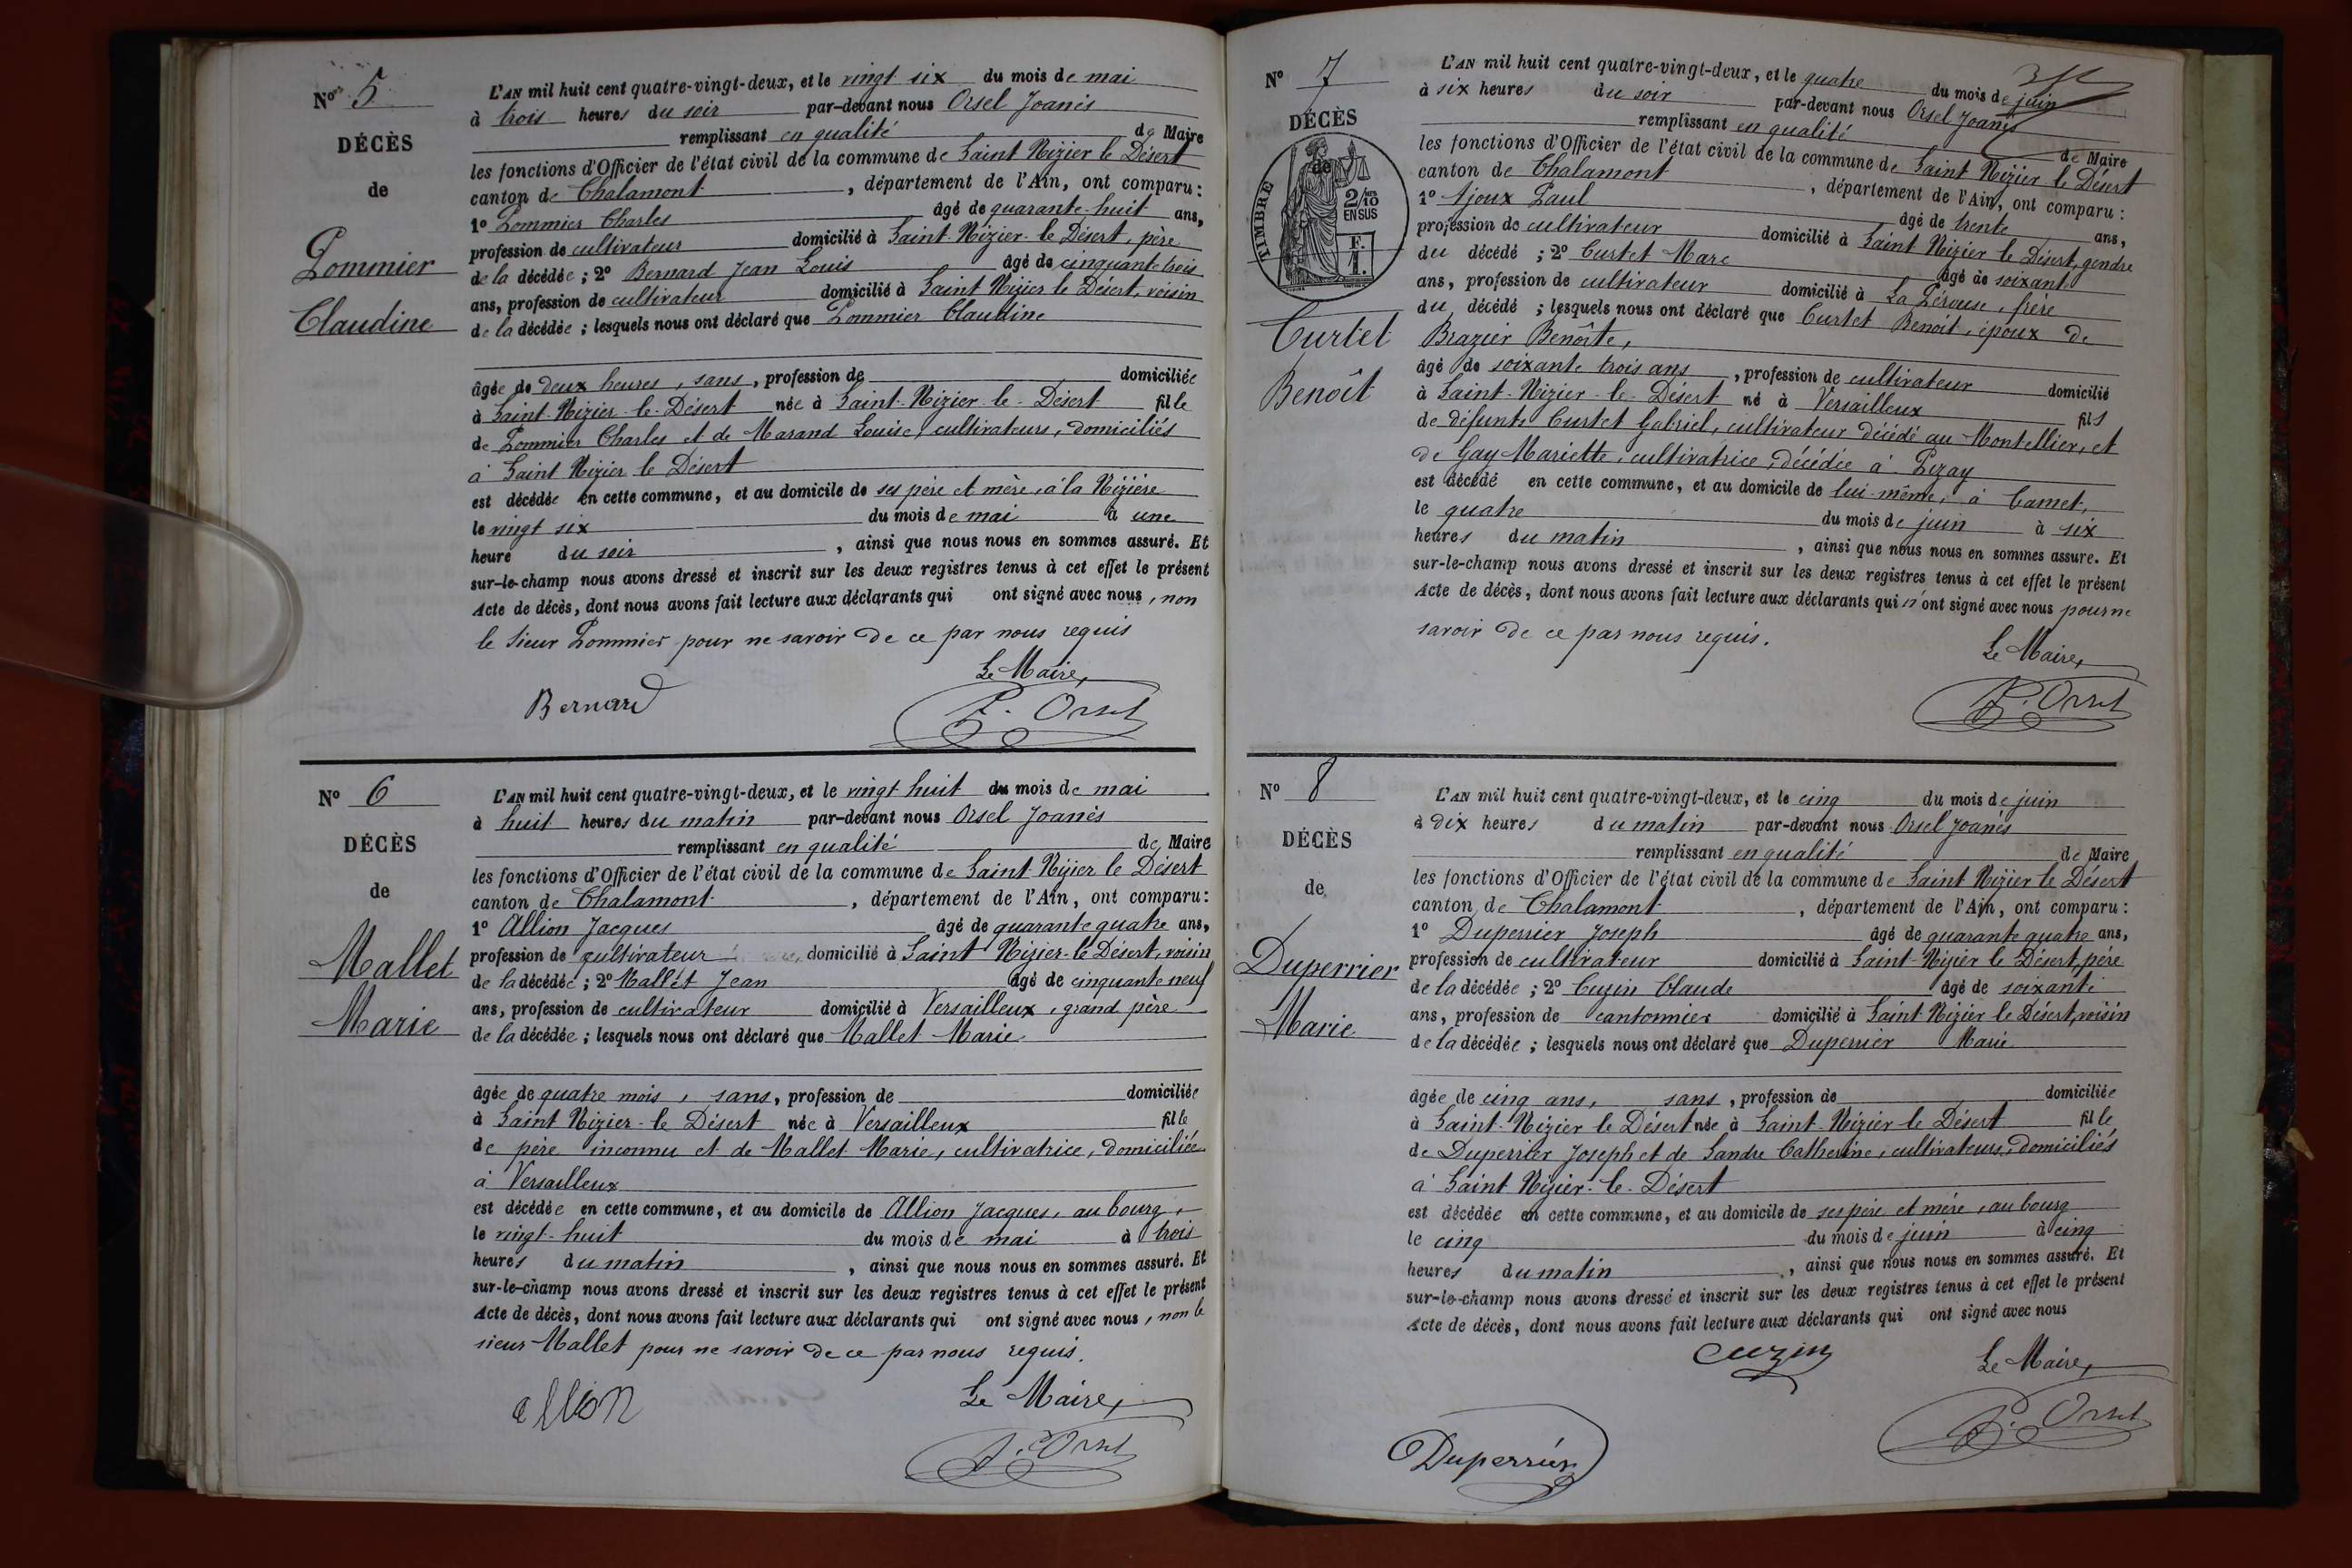 Nº 5
DÉCÈS
de
Pommier
Claudine
L'AN mil huit cent quatre-vingt-deux, et le vingt six du mois de mai
à trois heures du soir par-devant nous Orsel Joanès
remplissant en qualité de Maire
les fonctions d'Officier de l'état civil de la commune de Saint Nizier le Désert
canton de Chalamont, département de l'Ain, ont comparu :
1º Pommier Charles âgé de quarante-huit ans,
profession de cultivateur domicilié à Saint-Nizier-le Désert, père
de la décédée ; 2º Bernard Jean Louis âgé de cinquante trois
ans, profession de cultivateur domicilié à Saint Nizier le Désert, voisin
de la décédée ; lesquels nous ont déclaré que Pommier Claudine
âgée de deux heures, sans, profession de domiciliée
à Saint-Nizier-le-Désert née à Saint-Nizier-le-Désert fille
de Pommier Charles et de Marand Louise, cultivateurs, domiciliés
à Saint Nizier le Désert
est décédée en cette commune, et au domicile de ses père et mère, à la Nizière
le vingt six du mois de mai à une
heure du soir, ainsi que nous nous en sommes assuré. Et
sur-le-champ nous avons dressé et inscrit sur les deux registres tenus à cet effet le présent
Acte de décès, dont nous avons fait lecture aux déclarants qui ont signé avec nous, non
le sieur Pommier pour ne savoir de ce par nous requis
Le Maire,
Bernard
P. Orsel
Nº 6
DÉCÈS
de
Mallet
Marie
L'AN mil huit cent quatre-vingt-deux, et le vingt huit du mois de mai
à huit heures du matin par-devant nous Orsel Joanès
remplissant en qualité de Maire
les fonctions d'Officier de l'état civil de la commune de Saint-Nizier le Désert
canton de Chalamont, département de l'Ain, ont comparu :
1º Allion Jacques âgé de quarante quatre ans,
profession de cultivateur domicilié à Saint Nizier-le Désert, voisin
de la décédée ; 2º Mallet Jean âgé de cinquante neuf
ans, profession de cultivateur domicilié à Versailleux, grand père
de la décédée ; lesquels nous ont déclaré que Mallet Marie
âgée de quatre mois, sans, profession de domiciliée
à Saint Nizier-le Désert née à Versailleux fille
de père inconnu et de Mallet Marie, cultivatrice, domiciliée
à Versailleux
est décédée en cette commune, et au domicile de Allion Jacques, au bourg,
le vingt-huit du mois de mai à trois
heures du matin, ainsi que nous nous en sommes assuré. Et
sur-le-champ nous avons dressé et inscrit sur les deux registres tenus à cet effet le présent
Acte de décès, dont nous avons fait lecture aux déclarants qui ont signé avec nous, non le
sieur Mallet pour ne savoir de ce par nous requis.
Le Maire,
allion
P. Orsel
Nº 7
DÉCÈS
de
TIMBRE
2/10
EN SUS
F.
1.
Curtet
Benoît
L'AN mil huit cent quatre-vingt-deux, et le quatre du mois de juin
à six heures du soir par-devant nous Orsel Joanès
remplissant en qualité de Maire
les fonctions d'Officier de l'état civil de la commune de Saint Nizier le Désert
canton de Chalamont, département de l'Ain, ont comparu :
1º Ajoux Paul âgé de trente ans,
profession de cultivateur domicilié à Saint Nizier le Désert, gendre
du décédé ; 2º Curtet Marc âgé de soixante
ans, profession de cultivateur domicilié à La Pérouse, frère
du décédé ; lesquels nous ont déclaré que Curtet Benoît, époux de
Brazier Benoîte,
âgé de soixante trois ans, profession de cultivateur domicilié
à Saint-Nizier-le-Désert né à Versailleux fils
de défunts Curtet Gabriel, cultivateur décédé au Montellier, et
de Gay Mariette, cultivatrice, décédée à Pizay
est décédé en cette commune, et au domicile de lui-même, à Camet,
le quatre du mois de juin à six
heures du matin, ainsi que nous nous en sommes assuré. Et
sur-le-champ nous avons dressé et inscrit sur les deux registres tenus à cet effet le présent
Acte de décès, dont nous avons fait lecture aux déclarants qui n'ont signé avec nous pour ne
savoir de ce par nous requis.
Le Maire,
P. Orsel
Nº 8
DÉCÈS
de
Duperrier
Marie
L'AN mil huit cent quatre-vingt-deux, et le cinq du mois de juin
à dix heures du matin par-devant nous Orsel Joanès
remplissant en qualité de Maire
les fonctions d'Officier de l'état civil de la commune de Saint Nizier le Désert
canton de Chalamont, département de l'Ain, ont comparu :
1º Duperrier Joseph âgé de quarante quatre ans,
profession de cultivateur domicilié à Saint-Nizier le Désert, père
de la décédée ; 2º Cuzin Claude âgé de soixante
ans, profession de cantonnier domicilié à Saint-Nizier le Désert, voisin
de la décédée ; lesquels nous ont déclaré que Duperrier Marie
âgée de cinq ans, sans, profession de domiciliée
à Saint-Nizier le Désert née à Saint-Nizier le Désert fille
de Duperrier Joseph et de Sandre Catherine, cultivateurs, domiciliés
à Saint Nizier-le-Désert
est décédée en cette commune, et au domicile de ses père et mère, au bourg
le cinq du mois de juin à cinq
heures du matin, ainsi que nous nous en sommes assuré. Et
sur-le-champ nous avons dressé et inscrit sur les deux registres tenus à cet effet le présent
Acte de décès, dont nous avons fait lecture aux déclarants qui ont signé avec nous
Cuzin
Le Maire,
P. Orsel
Duperrier